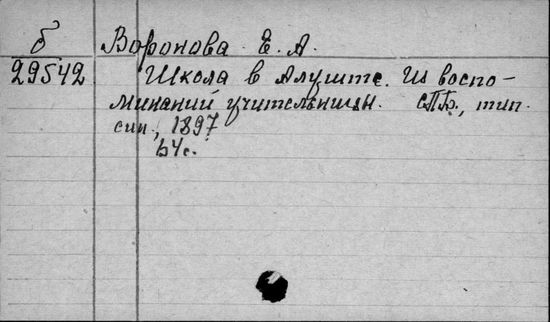 б Воронова Е. А.
29542 Школа в Алуште. Из воспо-
минаний учительницы. СПБ., тип.
син., 1897
64 с.